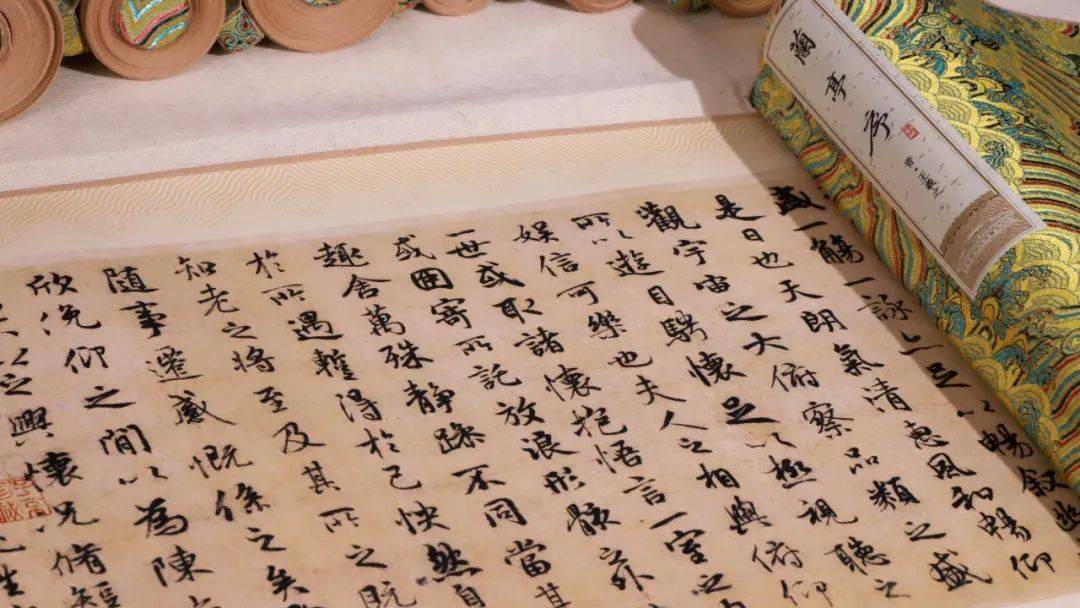 蘭亭序
晉·王羲之
盛一觴一詠亦足以暢敘幽
是日也天朗氣清惠風和暢仰
觀宇宙之大俯察品類之盛
所以遊目騁懷足以極視聽之
娛信可樂也夫人之相與俯仰
一世或取諸懷抱悟言一室之
或因寄所託放浪形骸
趣舍萬殊靜躁不同當其
於所遇暫得於己快然自
知老之將至及其所之既
隨事遷感慨係之矣
欣俛仰之間以為陳
不以之興懷況脩短